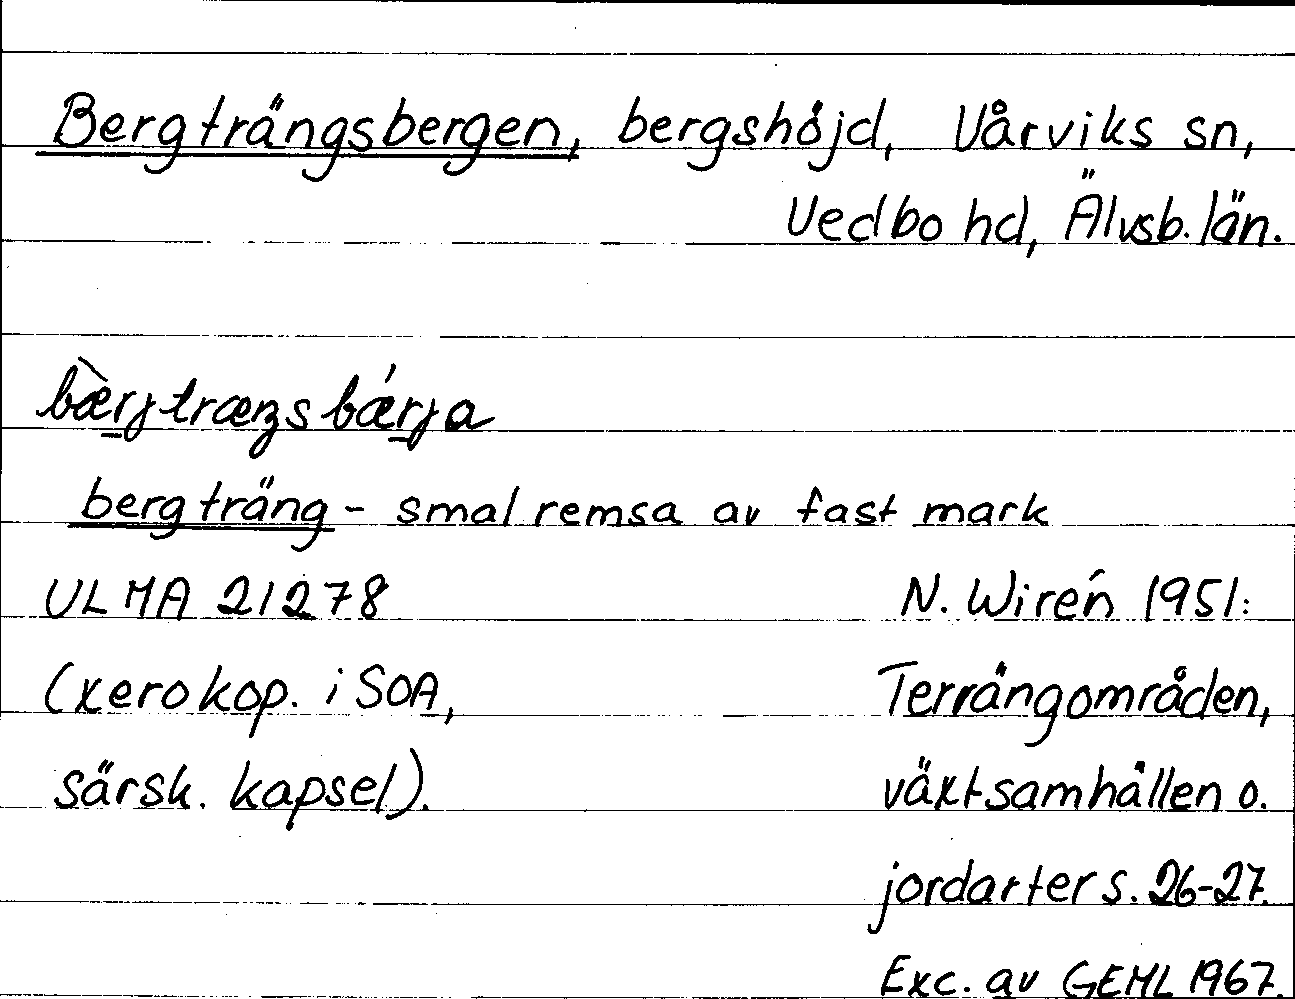 Bergträngsbergen, bergshöjd, Vårviks sn,
Vedbo hd, Älvsb. län.
bæ̀rjtræŋsbǽrja
bergträng - smal remsa av fast mark
ULMA 21278
(xerokop. i SOA,
särsk. kapsel).
N. Wirén 1951:
Terrängområden,
växtsamhällen o.
jordarter s. 26-27.
Exc. av GEML 1967.